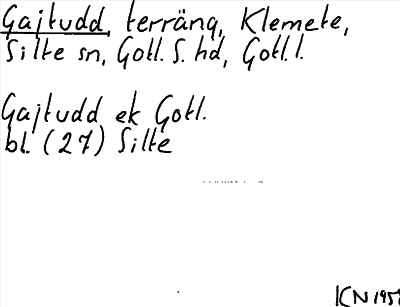 Gajtudd, terräng, Klemete,
Silte sn, Gotl. S. hd, Gotl. l.
Gajtudd ek Gotl.
bl. (27) Silte
KN 195